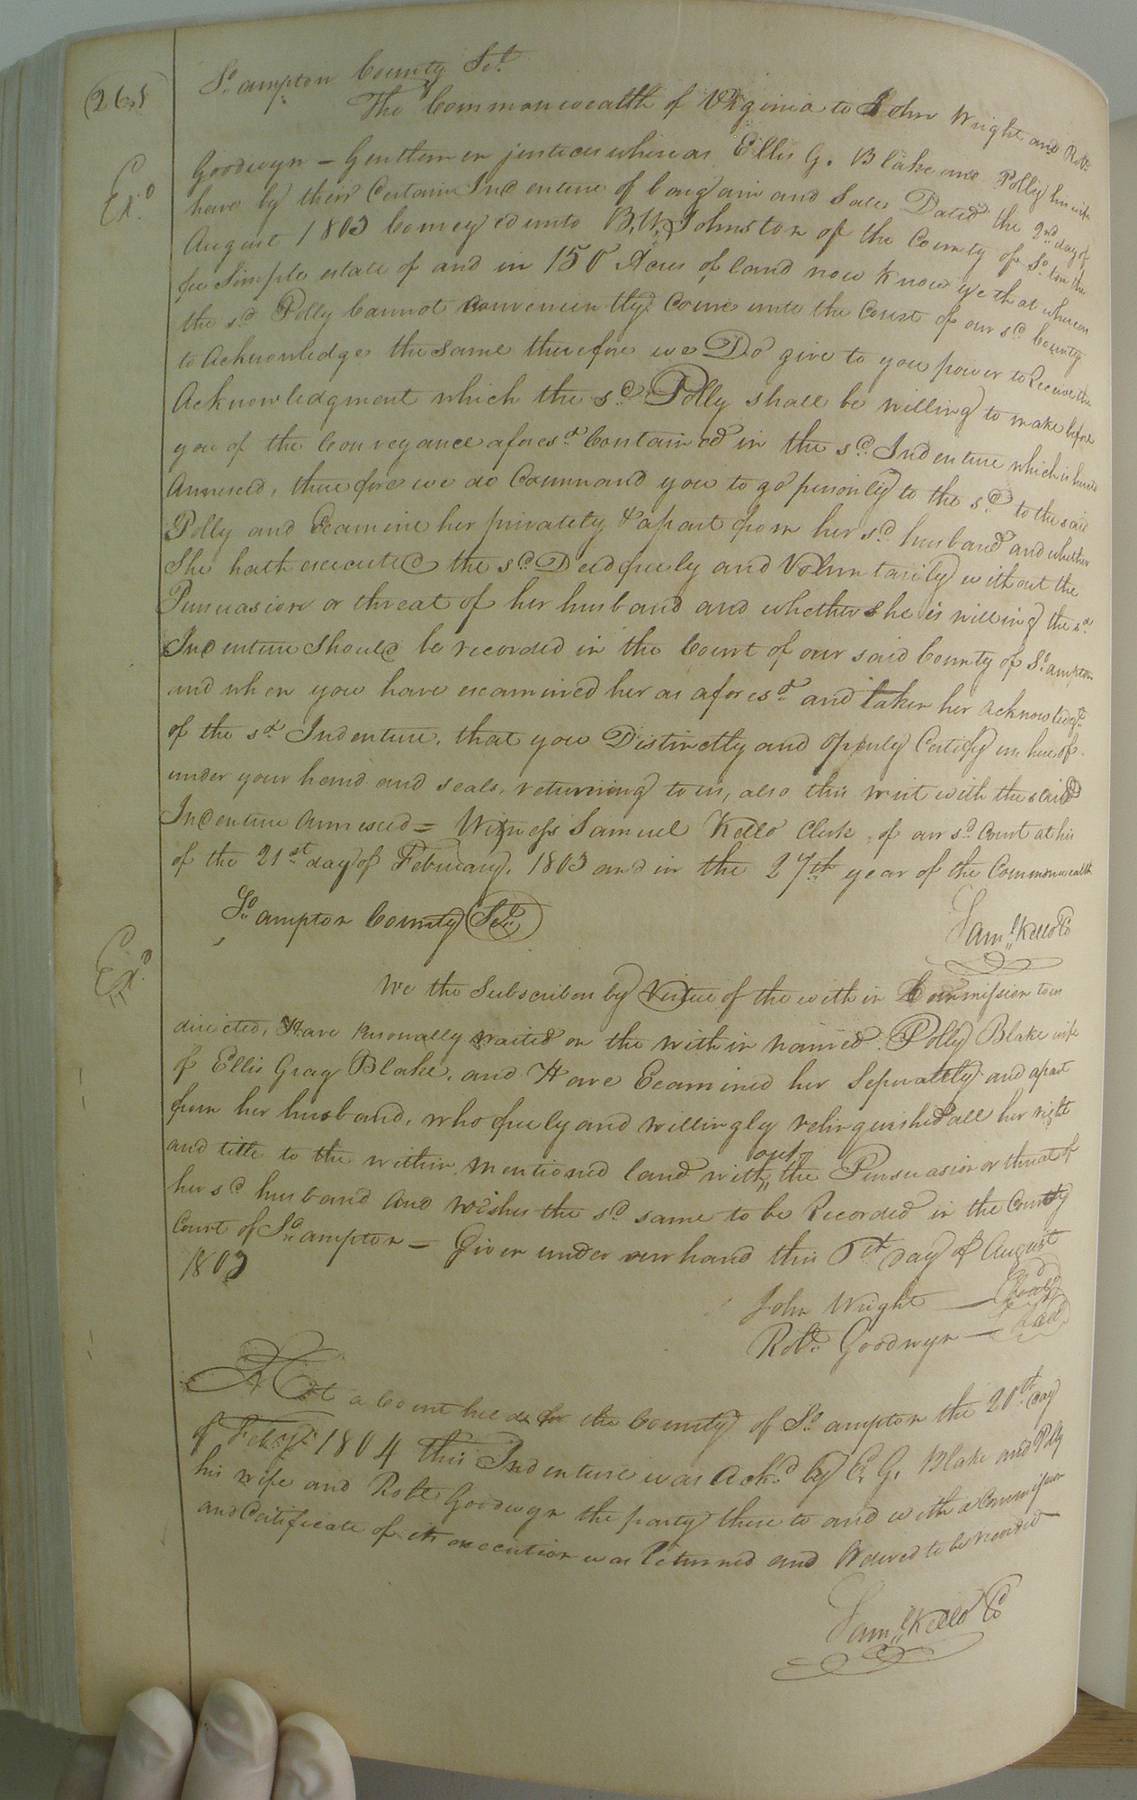 (265)
So. ampton County Sct.
The Commonwealth of Virginia to John Wright and Robt.
Goodwyn — Gentlemen justices whereas Ellis G. Blake and Polly his wife
Exd
have by their Certain Indenture of bargain and Sale Dated the 2nd day of
August 1803 Conveyed unto B, W, Johnston of the County of So. ton the
fee Simple estate of and in 150 Acres of land now know ye that whereas
the sd Polly Cannot conveniently Come unto the Court of our sd. County
to Acknowledge the same therefore we Do give to you power to Receive the
Acknowledgment which the sd. Polly shall be willing to make before
you of the Conveyance aforesd. Contained in the sd. Indenture which is hereto
Annexed, therefore we do Command you to go personly to the sd. to the said
Polly and Examine her privately & apart from her sd. husband and whether
She hath executed the sd. Deed freely and Voluntarily without the
Persuasion or threat of her husband and whether She is willing the sd.
Indenture Should be recorded in the Court of our said County of So. ampton
and when you have examined her as aforesd. and taken her Acknowledgt.
of the sd. Indenture, that you Distinctly and Openly Certify us hereof
under your hand and seals, returning to us, also this writ with the said
Indenture Annexed = Witness Samuel Kello Clerk of our sd. Court at his
of the 21st. day of February, 1803 and in the 27th. year of the Commonwealth
So. ampton County (Sct.)
Saml. Kello C
Exd
We the Subscribers by Virtue of the with in Commission to us
directed, Have personally waited on the with in named Polly Blake wife
of Ellis Gray Blake, and Have Examined her Seperately and apart
from her husband, who freely and willingly relinquished all her right
and title to the within mentioned land with out the Persuasion or threat of
her sd husband and wishes the sd same to be Recorded in the County
Court of So. ampton — Given under our hand this 5th Day of August
1803
John Wright — (Seal)
Robt. Goodwyn — (Seal)
At a Court held for the County of So. ampton the 20th. day
of Feby. 1804 This Indenture was Ackd. by E. G. Blake and Polly
his wife and Robt Goodwyn the party there to and with a Commission
and Certificate of its execution was Returned and Ordered to be recorded —
Saml. Kello C